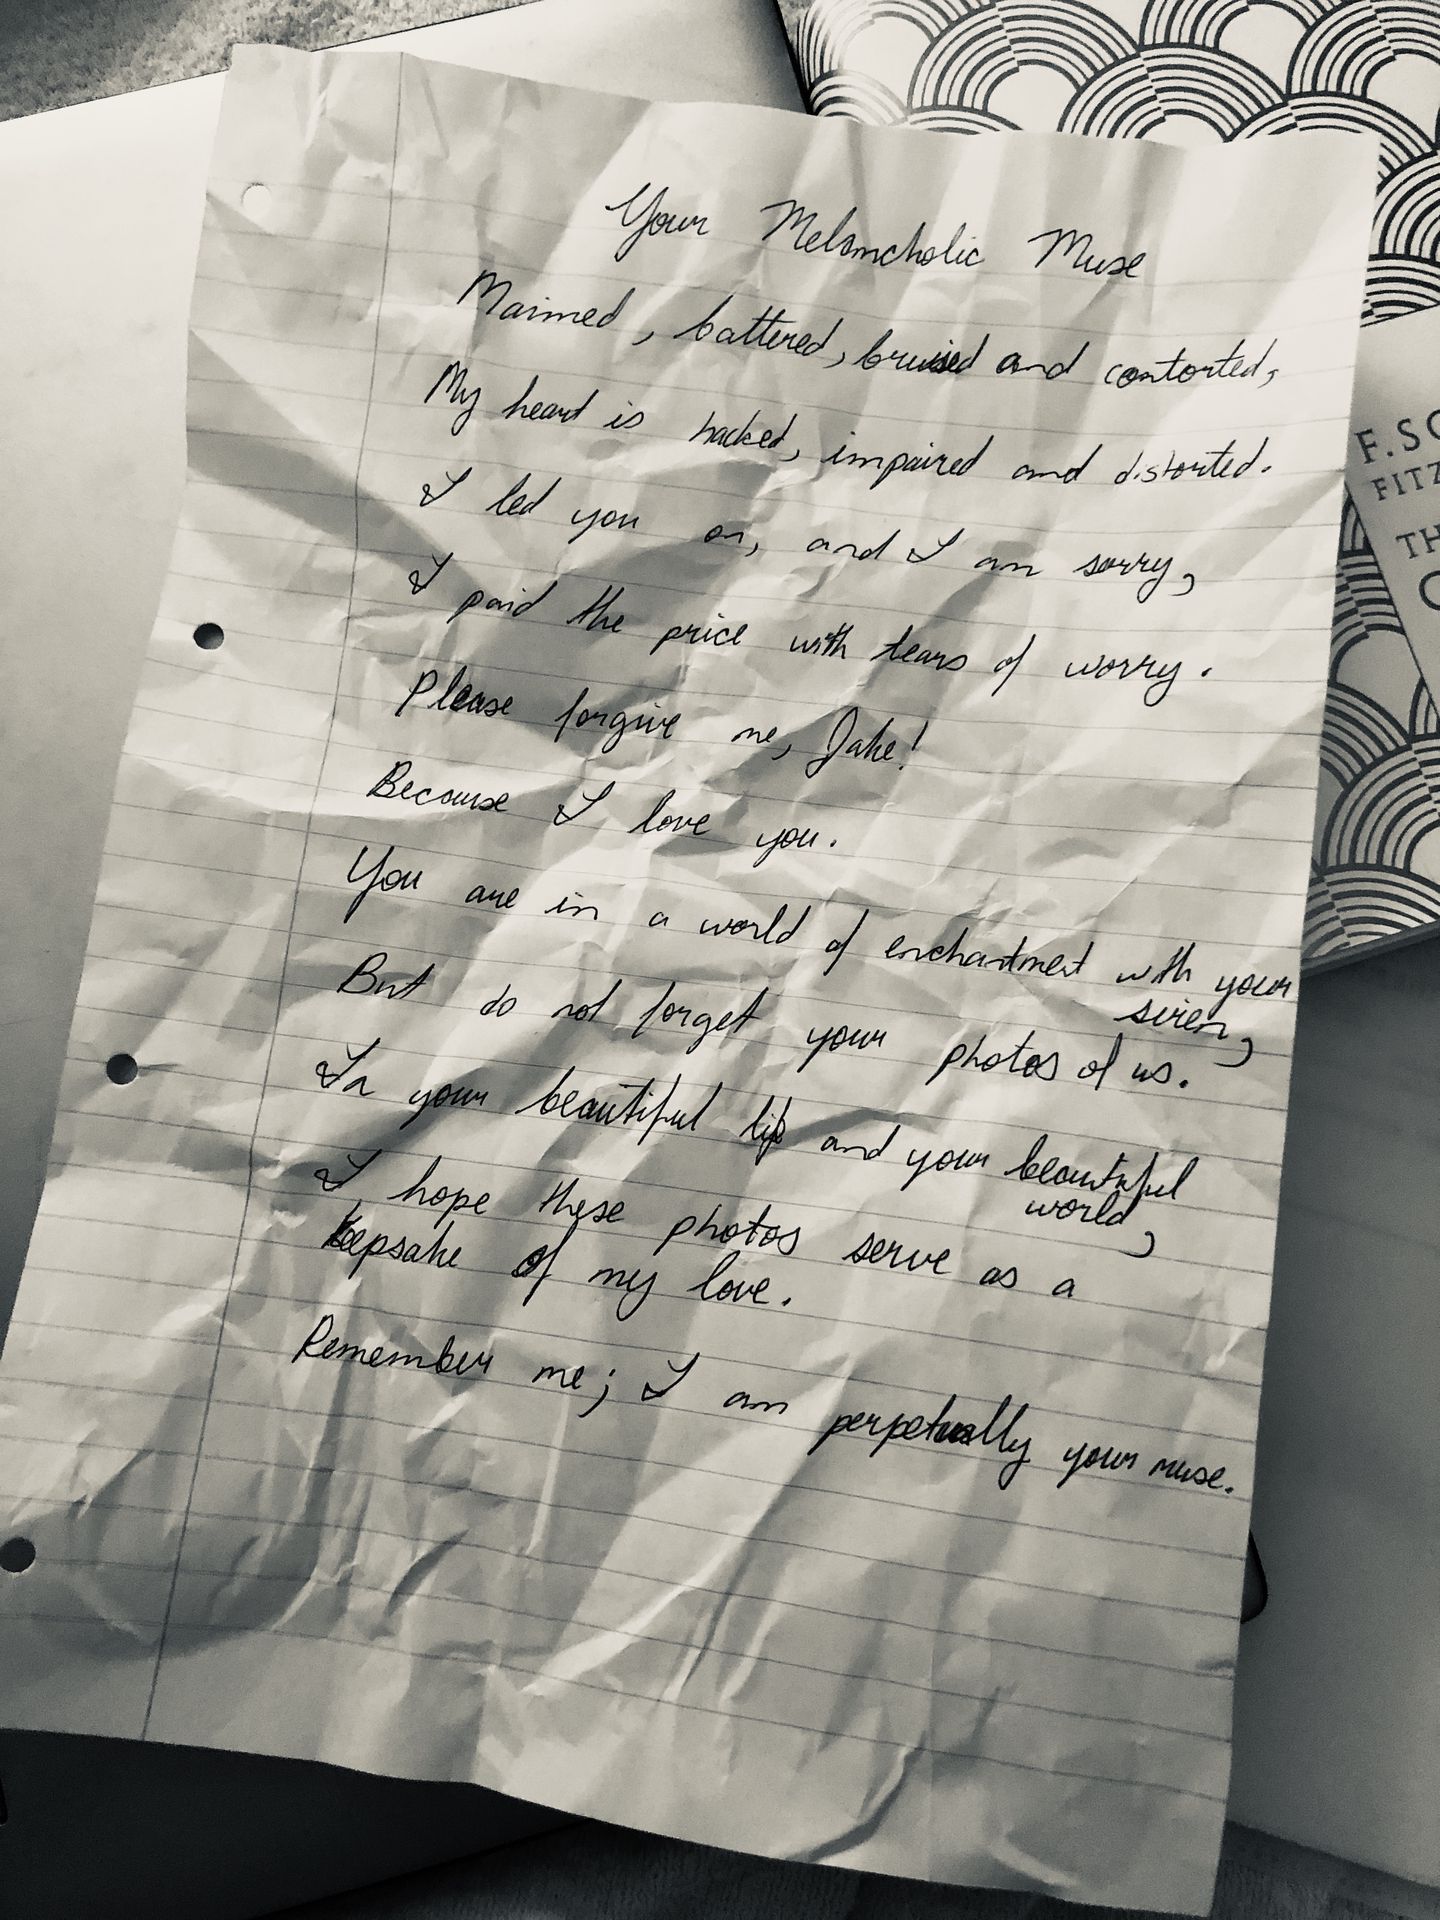 Your Melancholic Muse
Maimed, battered, bruised and contorted,
My heart is hacked, impaired and distorted.
I led you on, and I am sorry,
I paid the price with tears of worry.
Please forgive me, Jake!
Because I love you.
You are in a world of enchantment with your
siren,
But do not forget your photos of us.
In your beautiful life and your beautiful
world,
I hope these photos serve as a
keepsake of my love.
Remember me; I am perpetually your muse.
F. SC
FITZ
TH